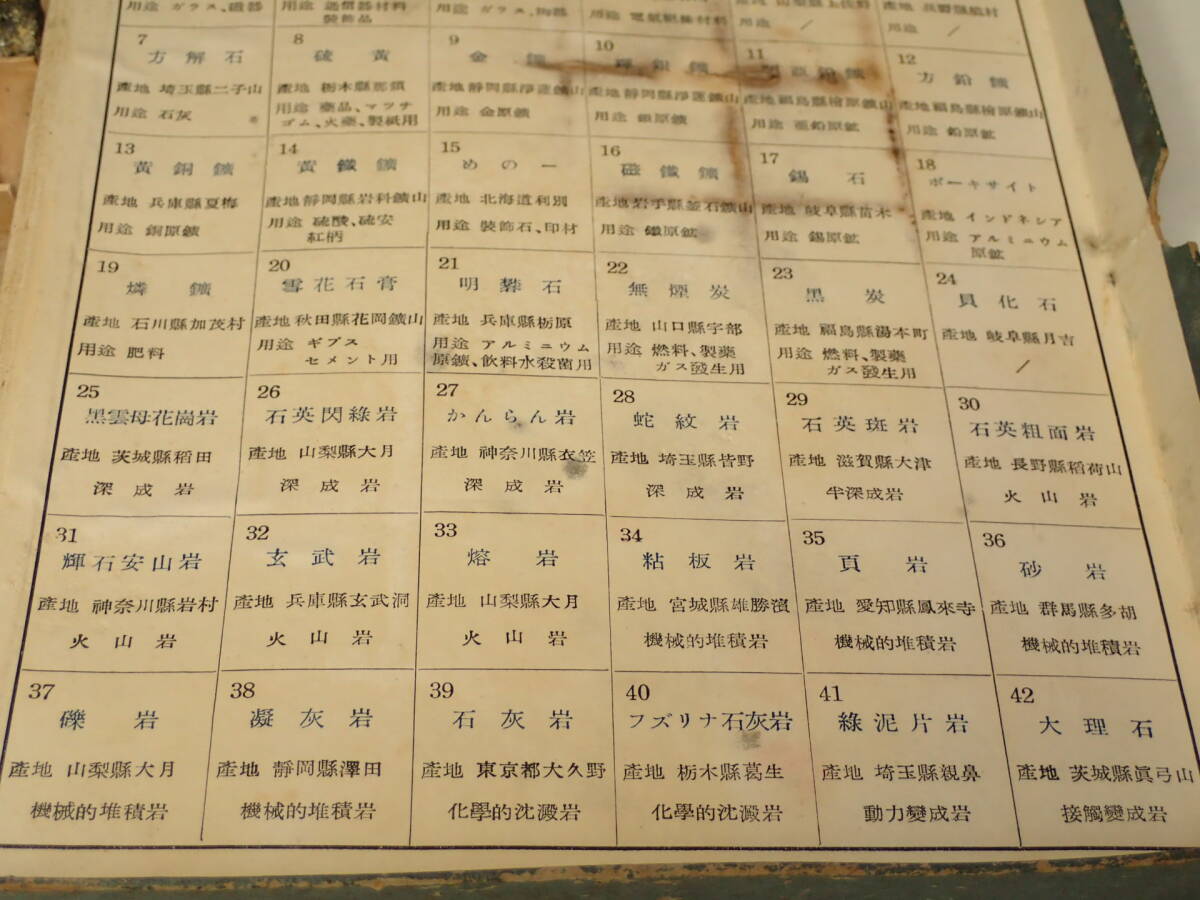 用途 ガラス、磁器
用途 通信器材料
裝飾品
用途 ガラス、陶器
用途 電氣絶緣材料
用途 /
用途 /
7
方解石
產地 埼玉縣二子山
用途 石灰
8
硫黃
產地 栃木縣那須
用途 藥品、マツチ
ゴム、火藥、製紙用
9
金鑛
產地 靜岡縣淨蓮鑛山
用途 金原鑛
10
輝銀鑛
產地 靜岡縣淨蓮鑛山
用途 銀原鑛
11
產地 福島縣檜原鑛山
用途 亜鉛原鉱
12
方鉛鑛
產地 福島縣檜原鑛山
用途 鉛原鉱
13
黃銅鑛
產地 兵庫縣夏梅
用途 銅原鑛
14
黃鐵鑛
產地 靜岡縣岩科鑛山
用途 硫酸、硫安
紅柄
15
めのー
產地 北海道利別
用途 裝飾石、印材
16
磁鐵鑛
產地 岩手縣釜石鑛山
用途 鐵原鉱
17
錫石
產地 岐阜縣苗木
用途 錫原鉱
18
ボーキサイト
產地 インドネシア
用途 アルミニウム
原鉱
19
燐鑛
產地 石川縣加茂村
用途 肥料
20
雪花石膏
產地 秋田縣花岡鑛山
用途 ギプス
セメント用
21
明礬石
產地 兵庫縣栃原
用途 アルミニウム
原鑛、飮料水殺菌用
22
無煙炭
產地 山口縣宇部
用途 燃料、製藥
ガス發生用
23
黑炭
產地 福島縣湯本町
用途 燃料、製藥
ガス發生用
24
貝化石
產地 岐阜縣月吉
/
25
黑雲母花崗岩
產地 茨城縣稻田
深成岩
26
石英閃綠岩
產地 山梨縣大月
深成岩
27
かんらん岩
產地 神奈川縣衣笠
深成岩
28
蛇紋岩
產地 埼玉縣皆野
深成岩
29
石英斑岩
產地 滋賀縣大津
半深成岩
30
石英粗面岩
產地 長野縣稻荷山
火山岩
31
輝石安山岩
產地 神奈川縣岩村
火山岩
32
玄武岩
產地 兵庫縣玄武洞
火山岩
33
熔岩
產地 山梨縣大月
火山岩
34
粘板岩
產地 宮城縣雄勝濱
機械的堆積岩
35
頁岩
產地 愛知縣鳳來寺
機械的堆積岩
36
砂岩
產地 群馬縣多胡
機械的堆積岩
37
礫岩
產地 山梨縣大月
機械的堆積岩
38
凝灰岩
產地 靜岡縣澤田
機械的堆積岩
39
石灰岩
產地 東京都大久野
化學的沈澱岩
40
フズリナ石灰岩
產地 栃木縣葛生
化學的沈澱岩
41
綠泥片岩
產地 埼玉縣親鼻
動力變成岩
42
大理石
產地 茨城縣眞弓山
接觸變成岩